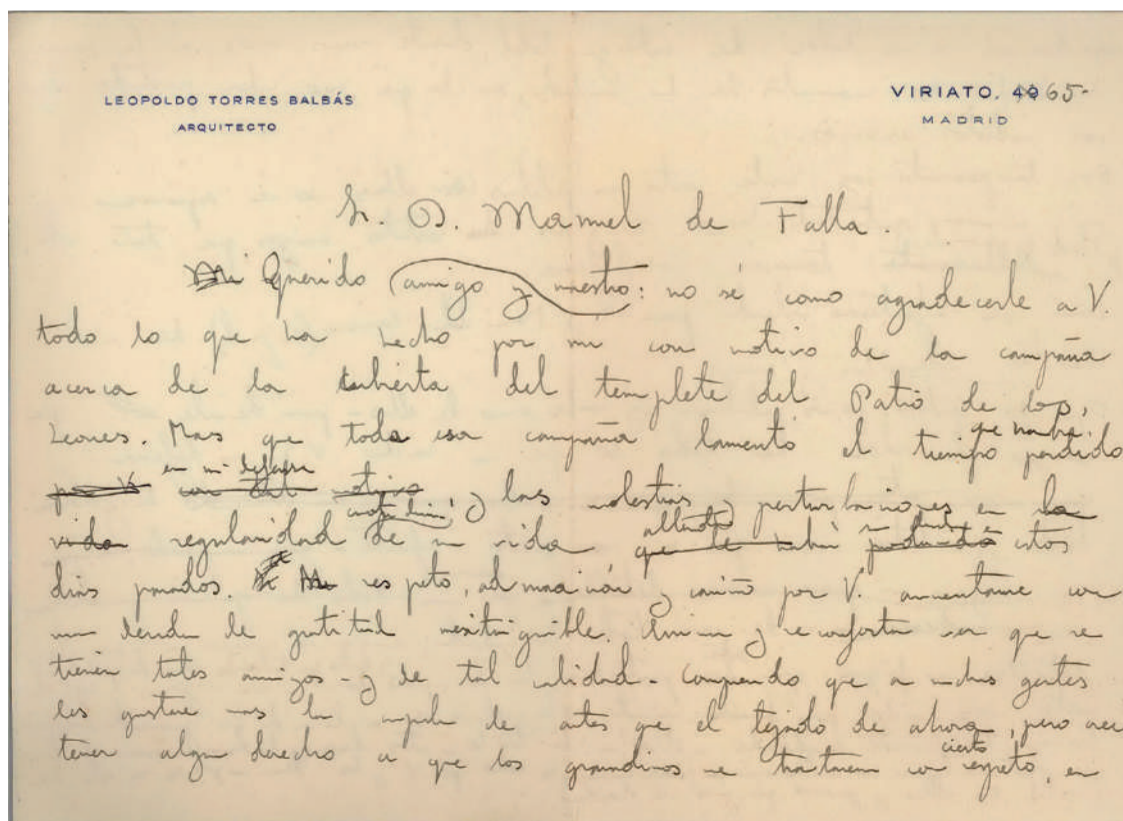 LEOPOLDO TORRES BALBÁS
ARQUITECTO
VIRIATO, 40 65-
MADRID
Sr. D. Manuel de Falla.
Mi Querido amigo y maestro: no sé como agradecerle a V.
todo lo que ha hecho por mi con motivo de la campaña
acerca de la cubierta del templete del Patio de los
Leones. Mas que toda esa campaña lamento el tiempo que habrá perdido
por V. en mi defensa con tal motivo y las molestias y perturbaciones en la
vida regularidad de su vida cotidiana que le habrá producido estos
dias pasados. Mi respeto, admiración y cariño por V. aumentanse con
una deuda de gratitud inextinguible. Anima y reconforta ver que se
tienen tales amigos - y de tal calidad - Comprendo que a muchas gentes
les gustase mas la cupula de antes que el tejado de ahora, pero creo
tener algun derecho a que los granadinos me tratasen con cierto respeto, en